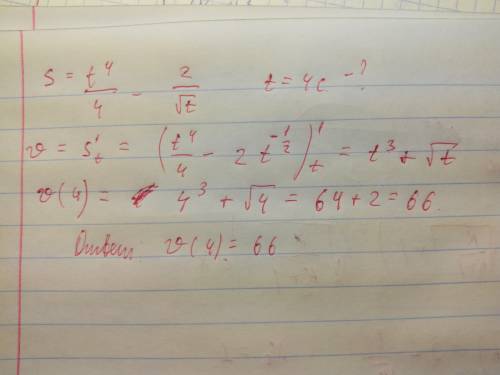 S = t⁴/4 - 2/√t t = 4c -?
v = S'ₜ = (t⁴/4 - 2t^(-1/2))'ₜ = t³ + √t
v(4) = 4³ + √4 = 64 + 2 = 66.
Ответ: v(4) = 66